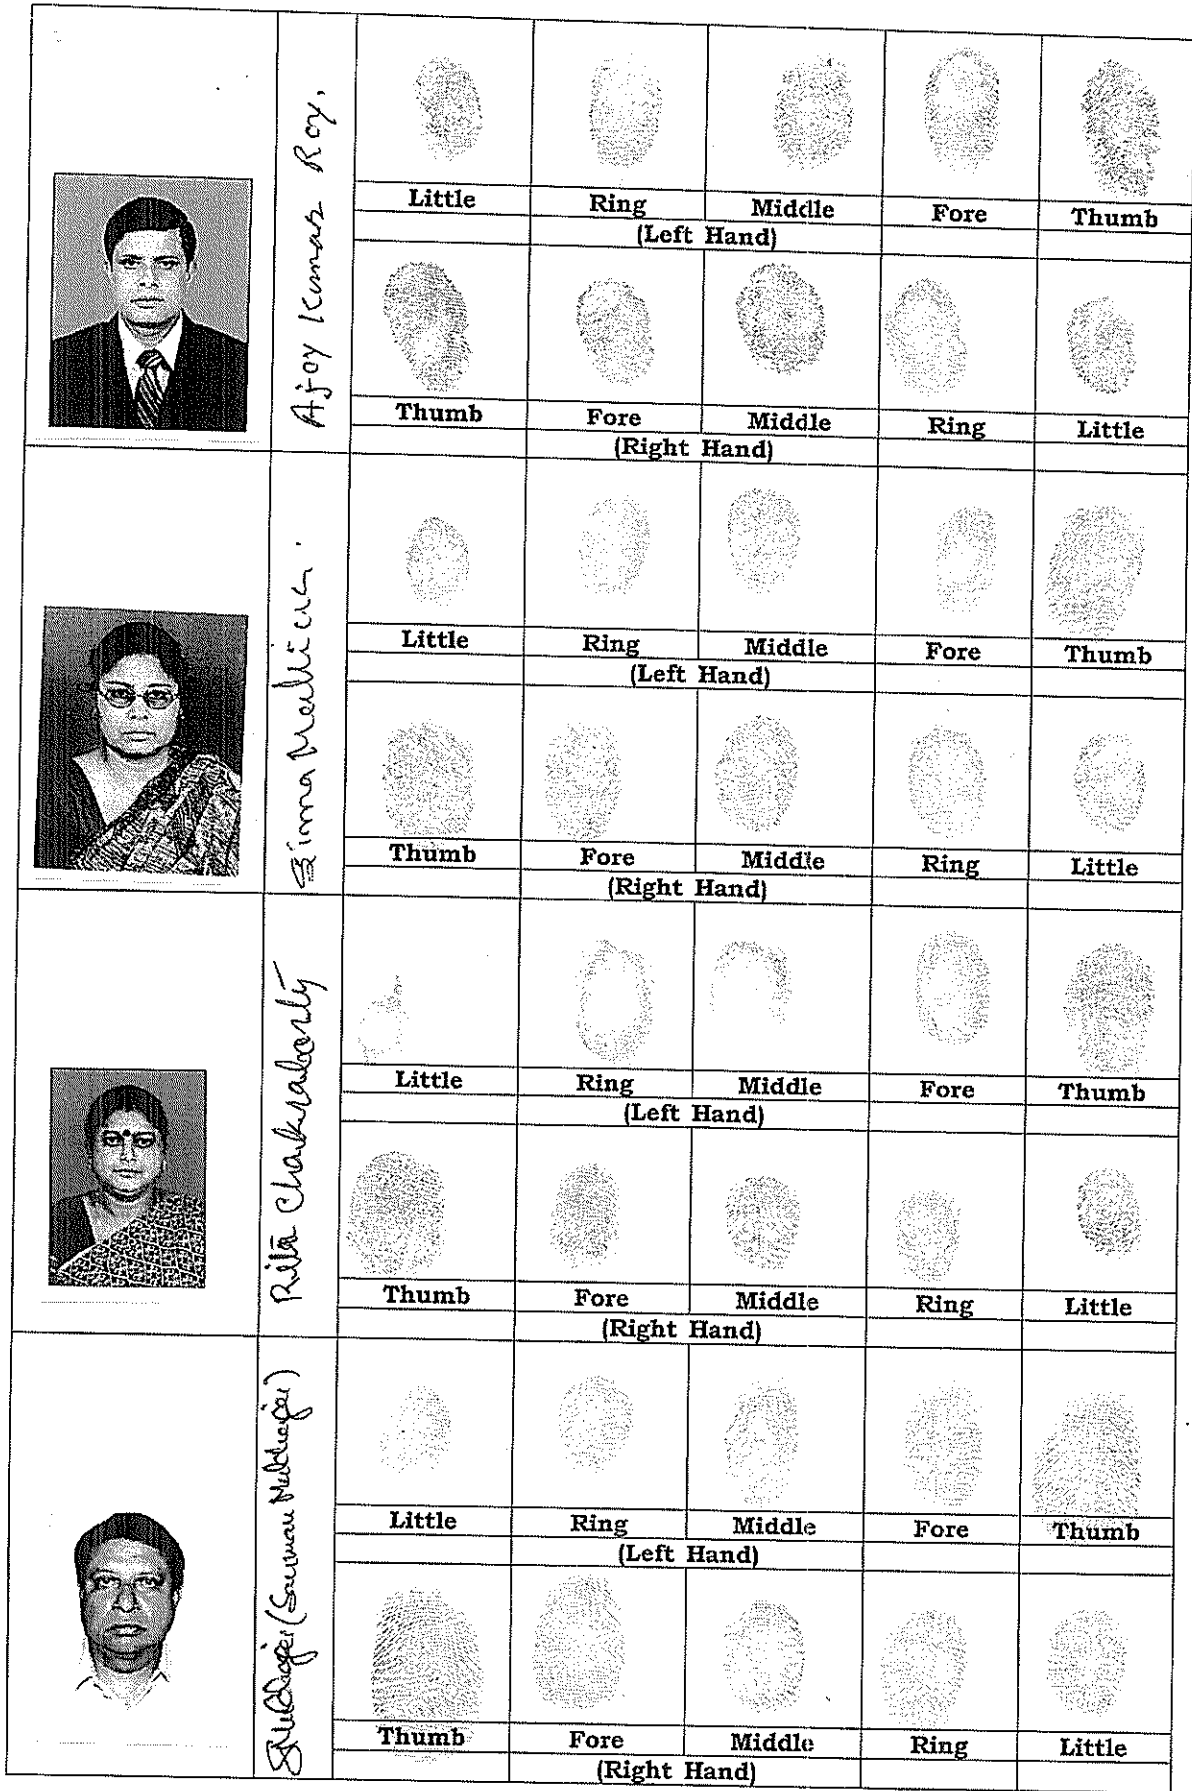 Ajoy Kumar Roy,
Little Ring Middle Fore Thumb
(Left Hand)
Thumb Fore Middle Ring Little
(Right Hand)
Little Ring Middle Fore Thumb
(Left Hand)
Thumb Fore Middle Ring Little
(Right Hand)
Rita Chakraborty
Little Ring Middle Fore Thumb
(Left Hand)
Thumb Fore Middle Ring Little
(Right Hand)
Little Ring Middle Fore Thumb
(Left Hand)
Thumb Fore Middle Ring Little
(Right Hand)